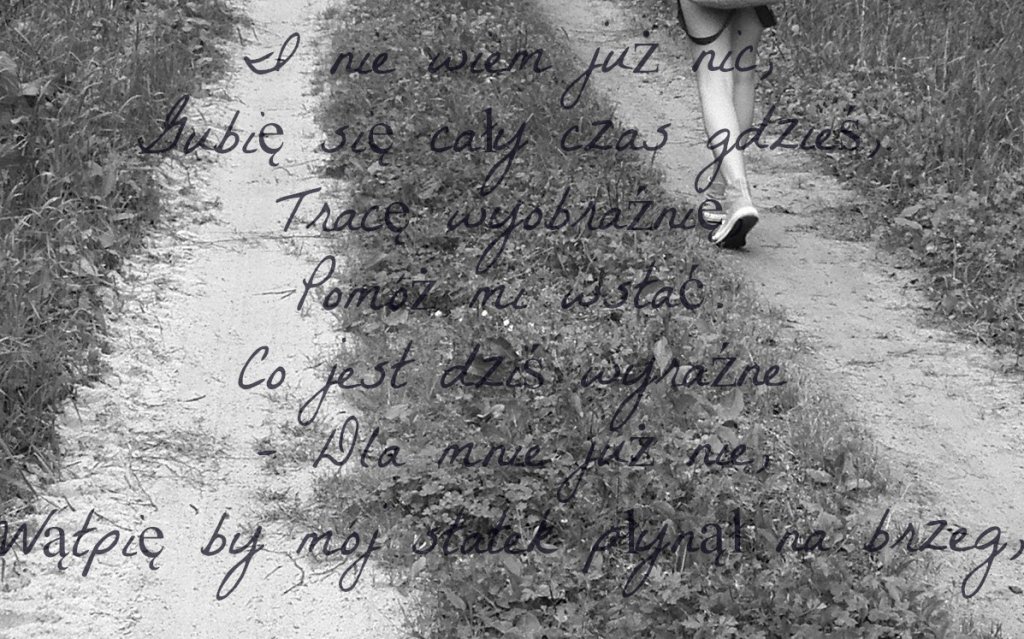 I nie wiem już nic,
Gubię się cały czas gdzieś,
Tracę wyobraźnię
Pomóż mi wstać.
Co jest dziś wyraźne
- Dla mnie już nie,
Wątpię by mój statek płynął na brzeg,